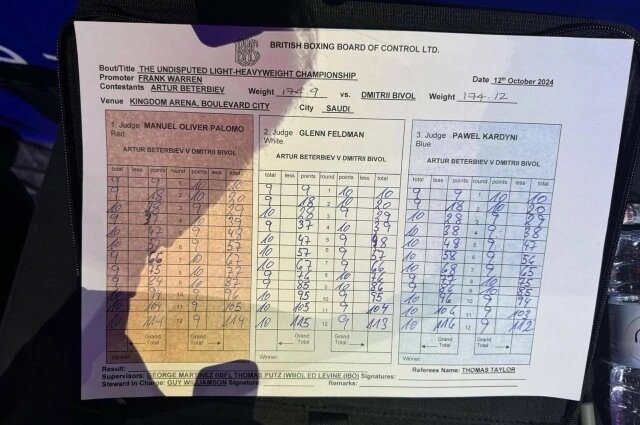 BRITISH BOXING BOARD OF CONTROL LTD.
Bout/Title THE UNDISPUTED LIGHT-HEAVYWEIGHT CHAMPIONSHIP
Promoter FRANK WARREN Date 12th October 2024
Contestants ARTUR BETERBIEV Weight 174.9 vs. DMITRII BIVOL Weight 174.12
Venue KINGDOM ARENA, BOULEVARD CITY City SAUDI
1. Judge MANUEL OLIVER PALOMO 2. Judge GLENN FELDMAN 3. Judge PAWEL KARDYNI
Red. White. Blue.
ARTUR BETERBIEV V DMITRII BIVOL ARTUR BETERBIEV V DMITRII BIVOL ARTUR BETERBIEV V DMITRII BIVOL
total less points round points less total total less points round points less total total less points round points less total
9 1 10 10 9 9 1 10 10 9 9 1 10 10
9 18 10 20 9 18 2 10 20 9 18 2 10 20
10 9 29 10 28 3 9 29 10 28 3 9 29
9 10 39 9 37 4 10 39 10 38 9 38
10 47 10 47 9 48 10 48 9 47
57 10 57 9 57 10 58 9 56
67 10 67 9 66 10 68 9 65
10 77 9 76 10 76 10
9 10 87 9 85 10 86 9 86 10 85
10 9 10 95 10 9 95 10 96 9 94
10 104 9 105 10 105 11 9 104 10 106 9 103
10 114 12 9 114 10 115 12 9 113 10 116 12 9 112
Grand Total Grand Total Grand Total Grand Total Grand Total Grand Total
Winner: Winner: Winner:
Result: Referees Name: THOMAS TAYLOR
Supervisors: GEORGE MARTINEZ (IBF), THOMAS PUTZ (WBO), ED LEVINE (IBO) Signatures:
Steward in Charge: GUY WILLIAMSON Signature: Remarks: